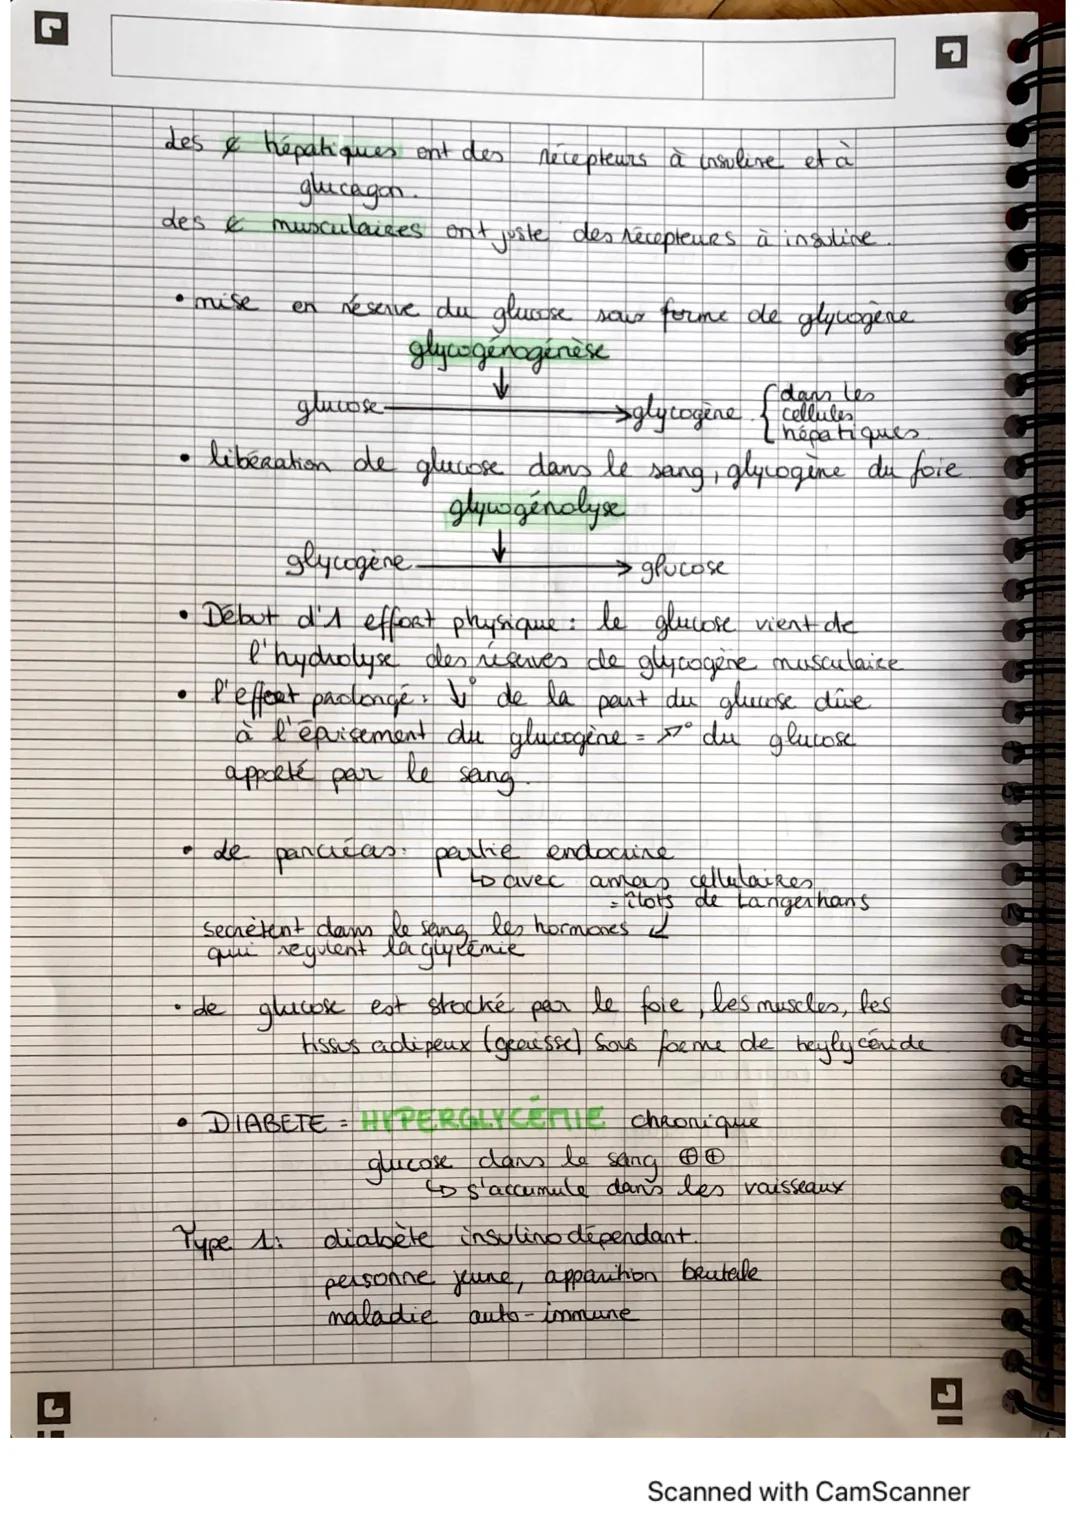 Les ¢ hépatiques ont des récepteurs à insuline et à
glucagon.
Les ¢ musculaires ont juste des récepteurs à insuline.
• mise en réserve du glucose sous forme de glycogène
glycogénogénèse
↓
glucose → glycogène { dans les
cellules
hépatiques
• libération de glucose dans le sang, glycogène du foie
glycogénolyse
↓
glycogène → glucose
• Début d'1 effort physique : le glucose vient de
l'hydrolyse des réserves de glycogène musculaire
• l'effort prolongé : ↓° de la part du glucose dûe
à l'épuisement du glucogène = ↗° du glucose
apporté par le sang.
• Le pancréas : partie endocrine
↳ avec amas cellulaires
= îlots de Langerhans
secrètent dans le sang les hormones ↲
qui régulent la glycémie
• Le glucose est stocké par le foie, les muscles, les
tissus adipeux (graisse) sous forme de tryglycéride
• DIABETE = HYPERGLYCÉMIE chronique
glucose dans le sang ⊕⊕
↳ s'accumule dans les vaisseaux
Type 1 : diabète insulinodépendant.
personne jeune, apparition brutale
maladie auto-immune
Scanned with CamScanner